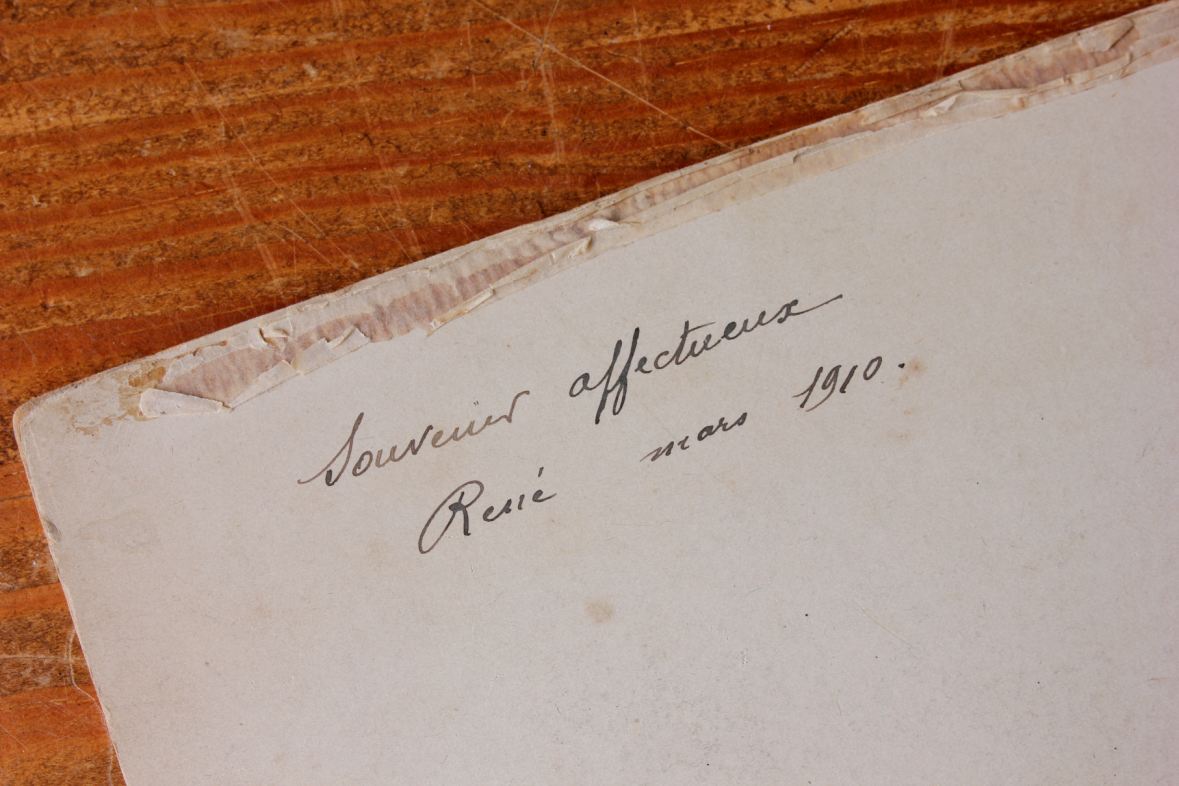 Souvenir affectueux
René mars 1910.